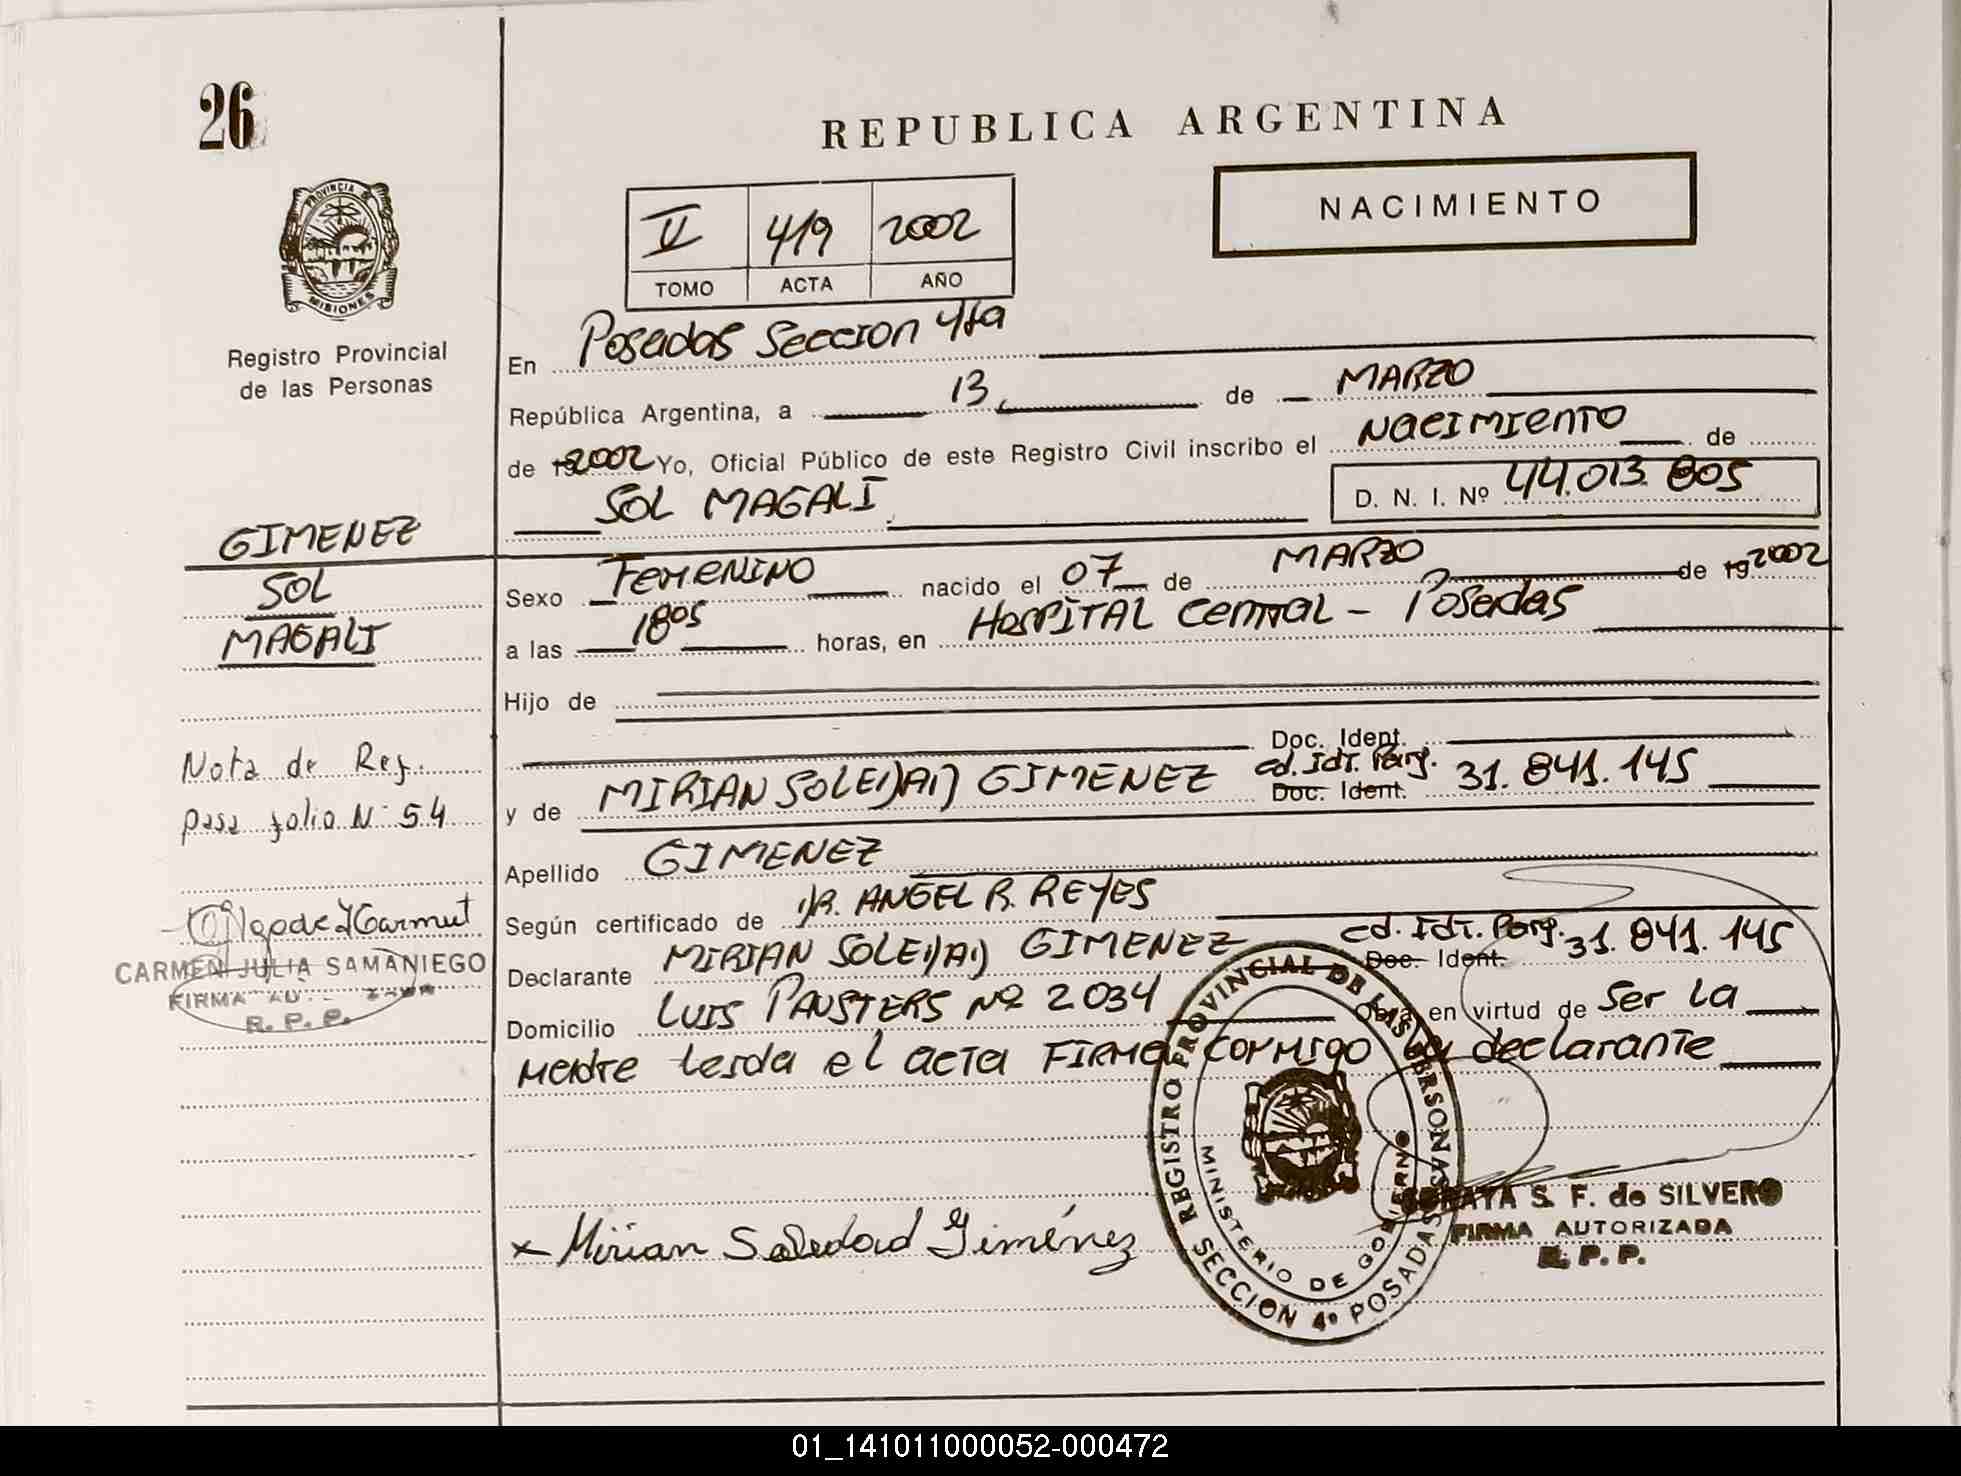 26
REPUBLICA ARGENTINA
NACIMIENTO
V 419 2002
TOMO ACTA AÑO
PROVINCIA DE MISIONES
Registro Provincial
de las Personas
En Posadas Seccion 4ta
República Argentina, a 13, de MARZO
de 192002 Yo, Oficial Público de este Registro Civil inscribo el Nacimiento de
SOL MAGALI D. N. I. Nº 44.013.805
GIMENEZ
SOL
MAGALI
Sexo FEMENINO nacido el 07 de MARZO de 192002
a las 18 05 horas, en HOSPITAL CENTRAL - Posadas
Hijo de
Doc. Ident.
y de MIRIAN SOLEDAD GIMENEZ cd. Idt. Parg. Doc. Ident. 31.841.145
Nota de Ref.
pasa folio Nº 54
Apellido GIMENEZ
Según certificado de DR. ANGEL R. REYES
Declarante MIRIAN SOLEDAD GIMENEZ cd. Idt. Parg. Doc. Ident. 31.841.145
Domicilio LUIS PAUSTERS Nº 2034 Obra en virtud de Ser la
madre leida el acta FIRMA CONMIGO la declarante
CARMEN JULIA SAMANIEGO
FIRMA
R. P. P.
x Mirian Soledad Giménez
REGISTRO PROVINCIAL DE LAS PERSONAS
MINISTERIO DE GOBIERNO
SECCION 4º POSADAS
SORAYA S. F. de SILVERO
FIRMA AUTORIZADA
R. P. P.
01_141011000052-000472